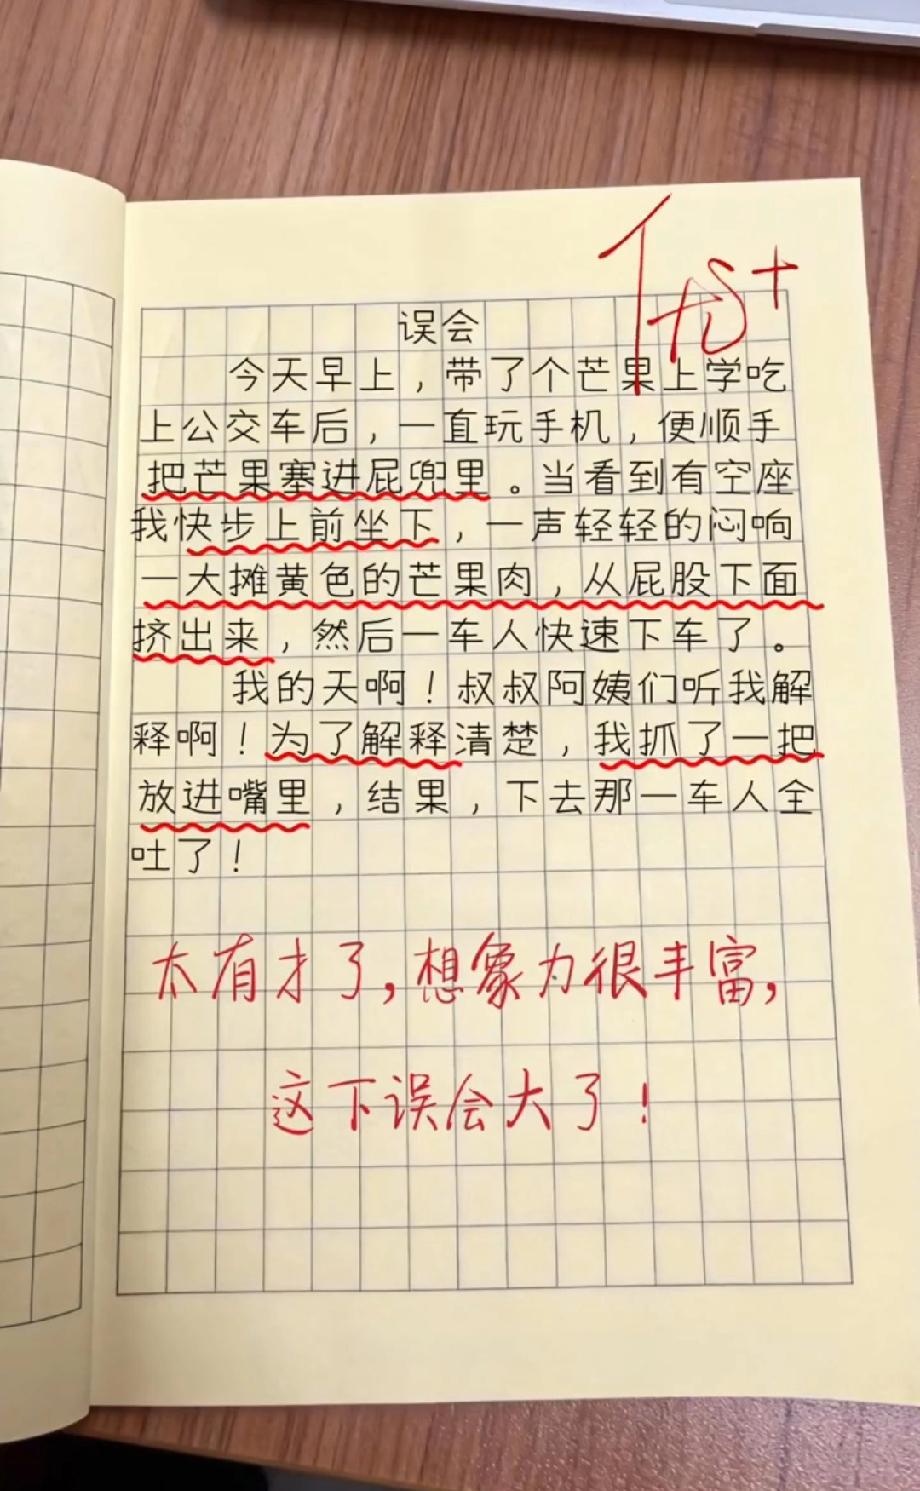 优+
误会
今天早上，带了个芒果上学吃
上公交车后，一直玩手机，便顺手
把芒果塞进屁兜里。当看到有空座
我快步上前坐下，一声轻轻的闷响
一大摊黄色的芒果肉，从屁股下面
挤出来，然后一车人快速下车了。
我的天啊！叔叔阿姨们听我解
释啊！为了解释清楚，我抓了一把
放进嘴里，结果，下去那一车人全
吐了！
太有才了，想象力很丰富，
这下误会大了！